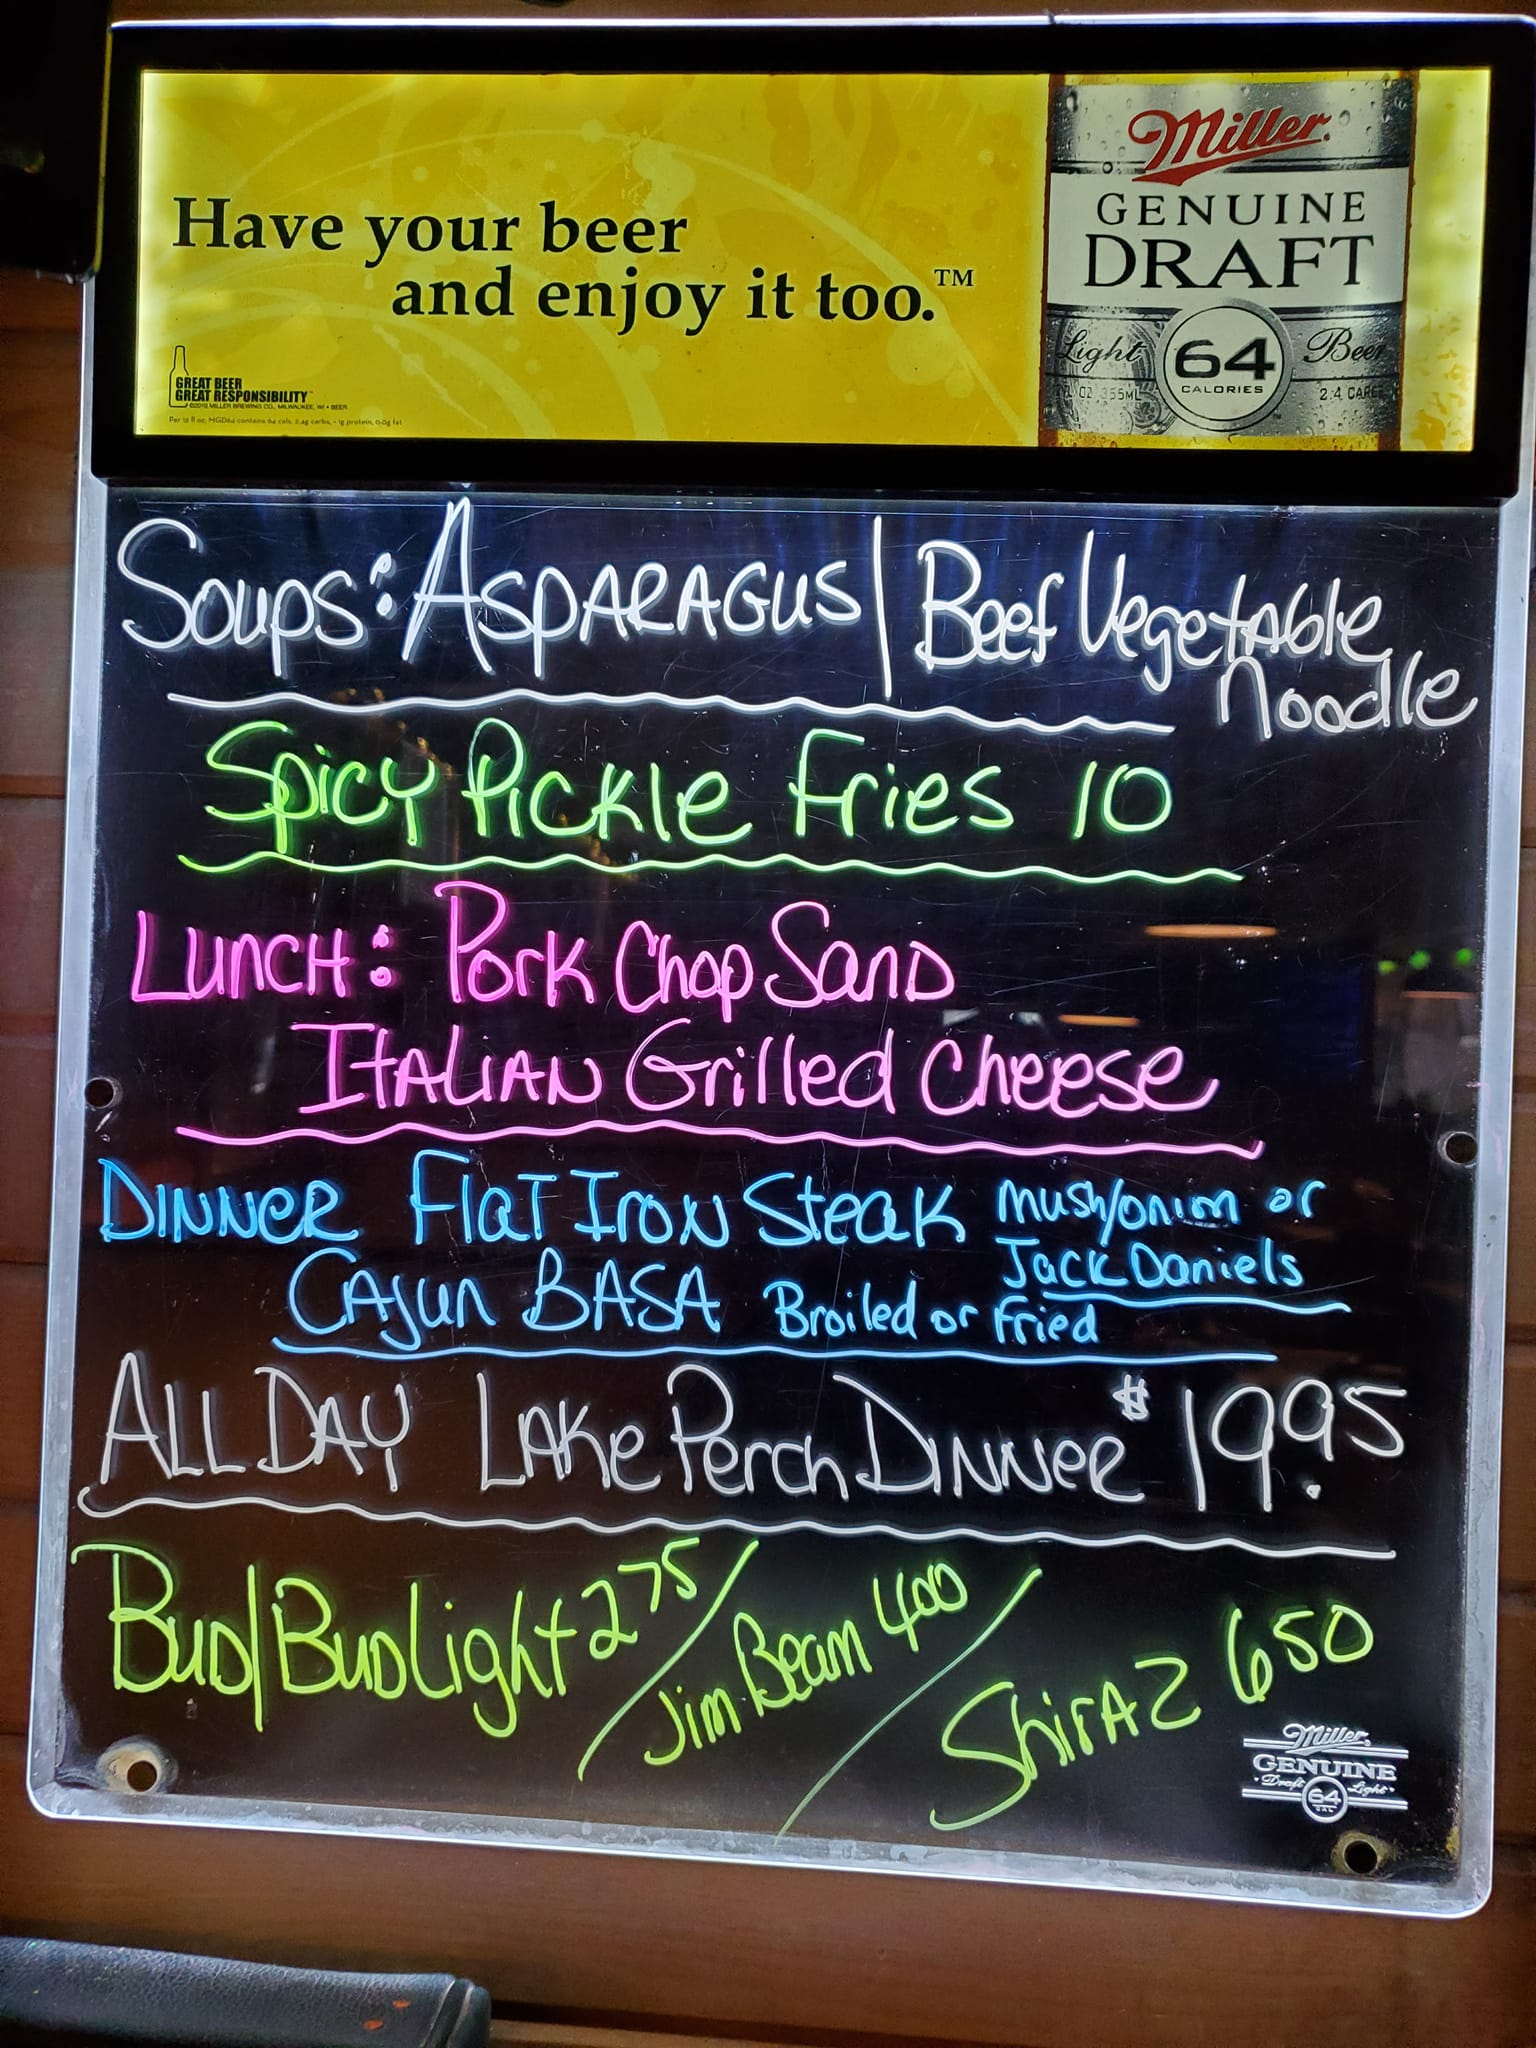 Have your beer
and enjoy it too.™
GREAT BEER
GREAT RESPONSIBILITY™
©2010 MILLER BREWING CO., MILWAUKEE, WI • BEER
Per 12 fl oz, MGD64 contains 64 cals, 2.4g carbs, <1g protein, 0.0g fat
Miller
GENUINE
DRAFT
Light 64 Beer
CALORIES
355ML
Soups: ASPARAGUS | Beef Vegetable
Noodle
Spicy Pickle Fries 10
LUNCH: Pork Chop Sand
ITALIAN Grilled Cheese
DINNER Flat Iron Steak mush/onion or
Jack Daniels
CAJun BASA Broiled or Fried
ALL DAY LAke Perch DINNeR $19.95
Bud/Bud Light 275 / Jim Beam 400 / ShirAz 650
Miller
GENUINE
Draft 64 Light
CAL